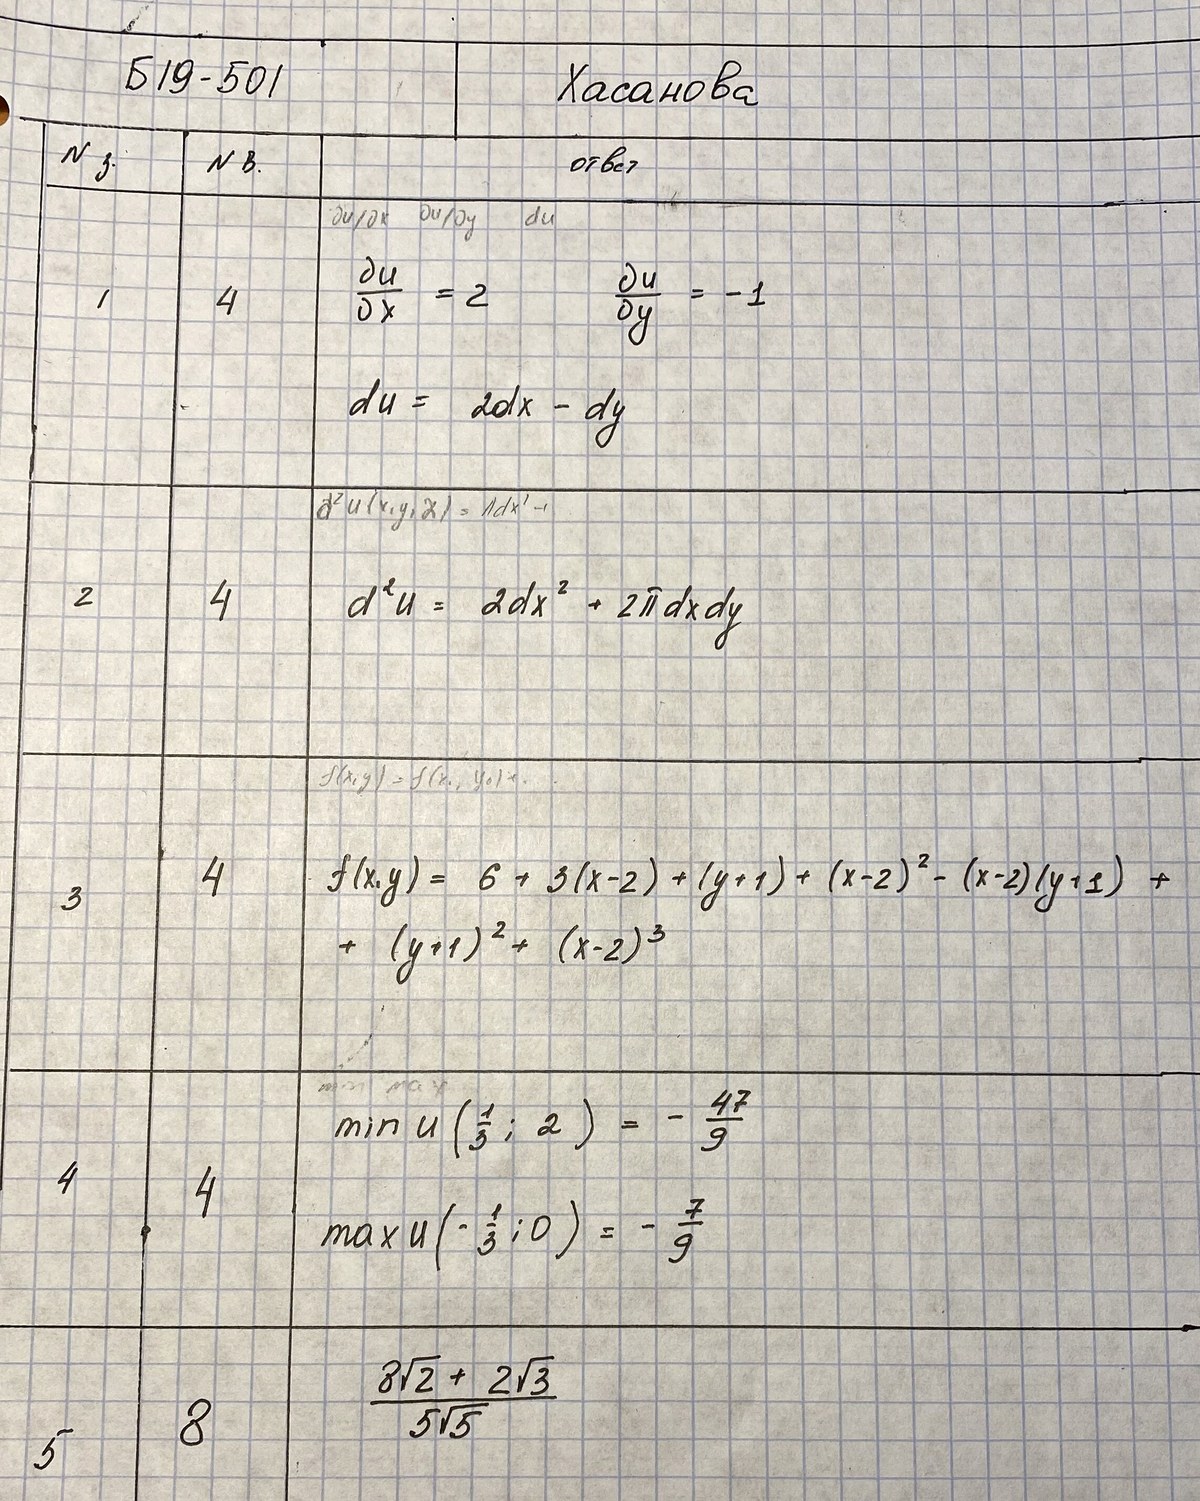 Б19-501 Хасанова
N з. N в. ответ
∂u/∂x ∂u/∂y du
1 4 ∂u/∂x = 2 ∂u/∂y = -1
du = 2dx - dy
d²u(x,y,2) =
2 4 d²u = 2dx² + 2πdxdy
f(x,y) = f(x₀, y₀)+...
3 4 f(x,y) = 6 + 3(x-2) + (y+1) + (x-2)² - (x-2)(y+1) +
+ (y+1)² + (x-2)³
min max
4 4 min u(1/3; 2) = - 47/9
max u(-1/3; 0) = - 7/9
5 8 (8√2 + 2√3)/(5√5)